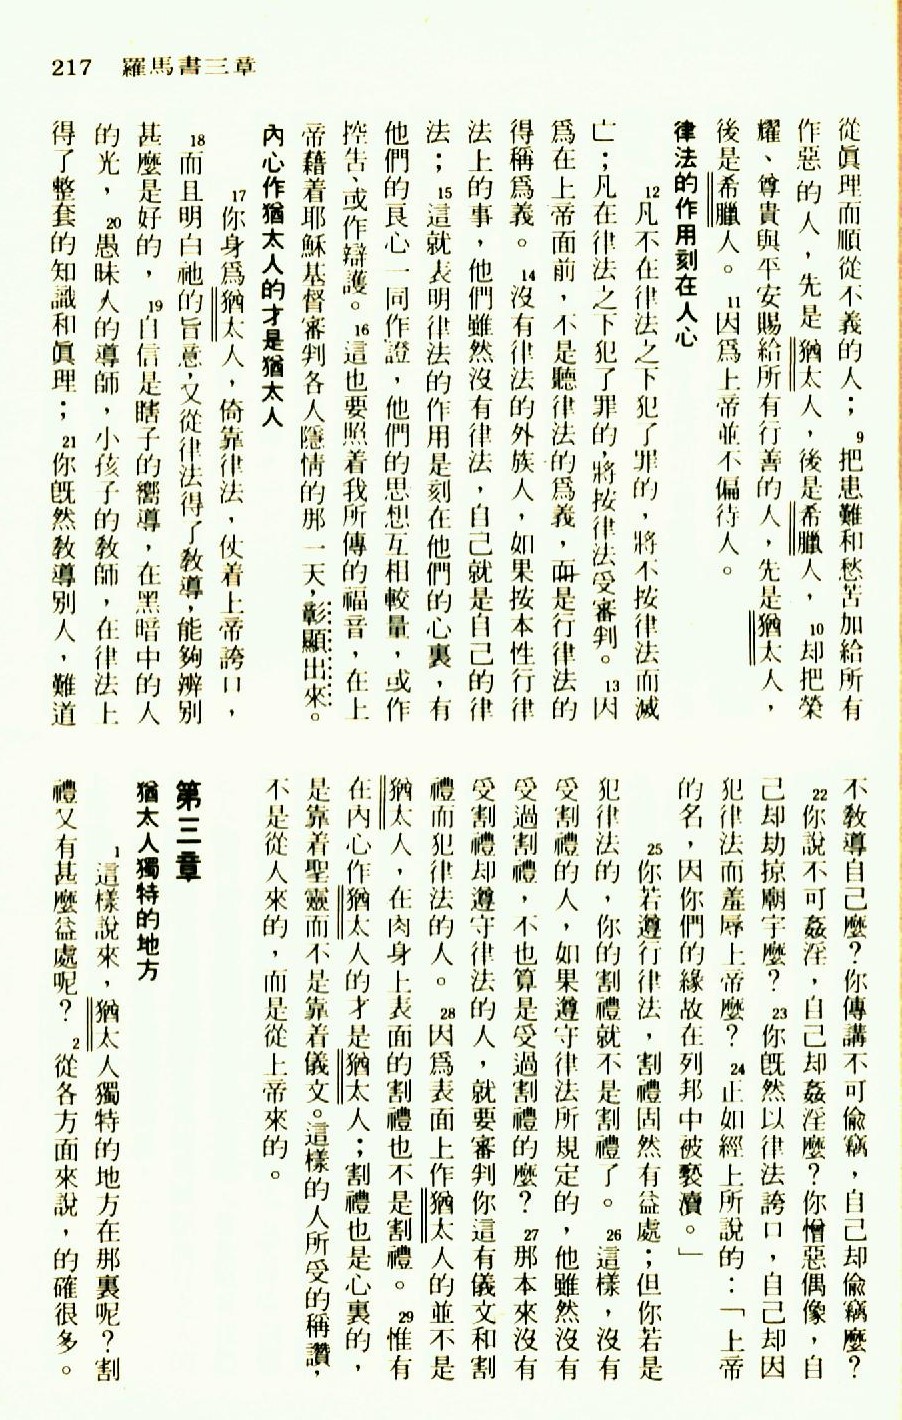 217 羅馬書三章
從眞理而順從不義的人；9把患難和愁苦加給所有
作惡的人，先是猶太人，後是希臘人，10却把榮
耀、尊貴與平安賜給所有行善的人，先是猶太人，
後是希臘人。11因爲上帝並不偏待人。
律法的作用刻在人心
12凡不在律法之下犯了罪的，將不按律法而滅
亡；凡在律法之下犯了罪的，將按律法受審判。13因
爲在上帝面前，不是聽律法的爲義，而是行律法的
得稱爲義。14沒有律法的外族人，如果按本性行律
法上的事，他們雖然沒有律法，自己就是自己的律
法；15這就表明律法的作用是刻在他們的心裏，有
他們的良心一同作證，他們的思想互相較量，或作
控告、或作辯護。16這也要照着我所傳的福音，在上
帝藉着耶穌基督審判各人隱情的那一天，彰顯出來。
內心作猶太人的才是猶太人
17你身爲猶太人，倚靠律法，仗着上帝誇口，
18而且明白祂的旨意，又從律法得了敎導，能夠辨別
甚麼是好的，19自信是瞎子的嚮導，在黑暗中的人
的光，20愚昧人的導師，小孩子的敎師，在律法上
得了整套的知識和眞理；21你旣然敎導別人，難道
不敎導自己麼？你傳講不可偷竊，自己却偷竊麼？
22你說不可姦淫，自己却姦淫麼？你憎惡偶像，自
己却劫掠廟宇麼？23你旣然以律法誇口，自己却因
犯律法而羞辱上帝麼？24正如經上所說的：「上帝
的名，因你們的緣故在列邦中被褻瀆。」
25你若遵行律法，割禮固然有益處；但你若是
犯律法的，你的割禮就不是割禮了。26這樣，沒有
受割禮的人，如果遵守律法所規定的，他雖然沒有
受過割禮，不也算是受過割禮的麼？27那本來沒有
受割禮却遵守律法的人，就要審判你這有儀文和割
禮而犯律法的人。28因爲表面上作猶太人的並不是
猶太人，在肉身上表面的割禮也不是割禮。29惟有
在內心作猶太人的才是猶太人；割禮也是心裏的，
是靠着聖靈而不是靠着儀文。這樣的人所受的稱讚，
不是從人來的，而是從上帝來的。
第三章
猶太人獨特的地方
1這樣說來，猶太人獨特的地方在那裏呢？割
禮又有甚麼益處呢？2從各方面來說，的確很多。